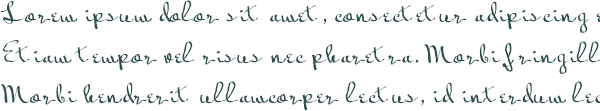 Lorem ipsum dolor sit amet, consectetur adipiscing e
Etiam tempor vel risus nec pharetra. Morbi fringill
Morbi hendrerit ullamcorper lectus, id interdum lec